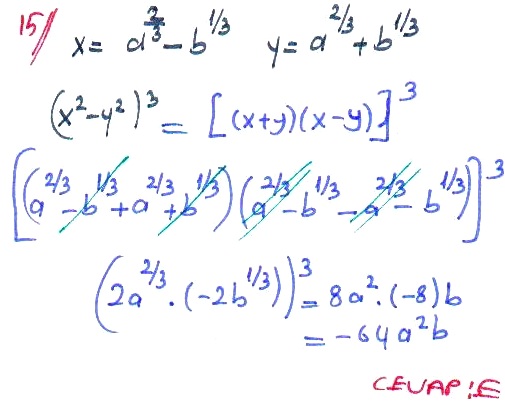 15/ x = a^{2/3} - b^{1/3} y = a^{2/3} + b^{1/3}
(x^2 - y^2)^3 = [(x+y)(x-y)]^3
[(a^{2/3} - b^{1/3} + a^{2/3} + b^{1/3}) (a^{2/3} - b^{1/3} - a^{2/3} - b^{1/3})]^3
(2a^{2/3} . (-2b^{1/3}))^3 = 8a^2 . (-8)b
= -64a^2b
CEVAP:E